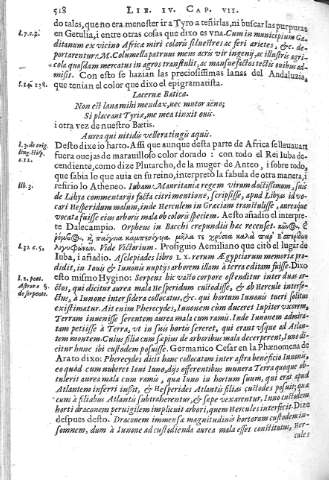 518 LIB. IV. CAP. VII.
do tales, que no era menester ir a Tyro a teñirlas, ni buscar las purpuras
l.7.c.2.
en Getulia, i entre otras cosas que dixo es una. Cum in municipium Ga-
ditanum ex vicino Africa miri coloris silvestres ac feri arietes, &c. de-
portarentur. M. Columella patruus meus acris vir ingenij, ac illustris agri-
cola quosdam mercatus in agros transtulit, ac mansuefactos tectis ovibus ad-
misit. Con esto se hazian las preciosissimas lanas del Andaluzia,
que tenian el color que dixo el epigramatista.
Lacernæ Bœticæ.
Non est lana mihi mendax, nec mutor aëno;
Si placeant Tyriæ, me mea tinxit ovis.
i otra vez de nuestro Bœtis.
Aurea qui nitidis vellera tingis aquis.
Desto dixe io harto. Assi que aunque desta parte de Africa se llevavan
fuera ovejas de maravilloso color dorado: con todo el Rei Iuba de-
cendiente, como dize Plutarcho, de la muger de Anteo, i sobre todo,
que sabia lo que avia en su reino, interpretò la fabula de otra manera, i
lib.3.
refirio lo Atheneo. Iubam Mauritaniæ regem virum doctissimum, suis
de Libya commentarijs facta citri mentione, scripsisse, apud Libyas id vo-
cari Hesperidum malum, inde Herculem in Græciam transtulisse, aureaque
vocata fuisse eius arboris mala ob coloris speciem. Aesto añadio el interpre-
te Dalecampio. Orpheus in Bacchi crepundiis hæc recenset.
Vide Fictarium. Prosiguio Aemiliano que citò el lugar de
Iuba, i añadio. Asclepiades libro LX. rerum Ægyptiarum memoriæ pro-
didit, in Iovis & Iunonis nuptijs arborem illam à terra editam fuisse. Dixo
esto mismo Hygino: Serpens hic vasto corpore ostenditur inter duas ar-
ctos, qui dicitur aurea mala Hesperidum custodisse, & ab Hercule interfe-
ctus, à Iunone inter sidera collocatus, &c. qui hortum Iunonis tueri solitus
existimatur. Ait enim Pherecydes, Iunonem cùm duceret Iupiter vxorem,
Terram invenisse ferentem aurea mala cum ramis. Inde Iunonem admira-
tam petiisse à Terra, vt in suis hortis sereret, qui erant vsque ad Atlan-
tem montem. Cuius filiæ cùm sæpius de arboribus mala decerperent, Iuno di-
citur hunc ibi custodem posuisse. Germanico Cesar en la Phænomena de
Arato dixo. Pherecydes dicit hunc collocatum inter astra beneficio Iunonis,
eo quod cum nuberet Ioni Iuno, dijs offerentibus munera Terra quoque ob-
tulerit aurea mala cum ramis, quæ Iuno in hortum suum, qui erat apud
Atlantem inferri iussit, & Hesperides Atlantis filias custodes posuit; quæ
cum à filiabus Atlantis subtraherentur, & sæpe vexarentur, Iuno custodem
horti draconem pervigilem implicuit arbori, quem Hercules interfecit. Dize
despues desto. Draconem immensa magnitudinis hortorum custodem in-
somnem, dum à Iunone ad custodienda aurea mala esset constitutus, Her-
cules